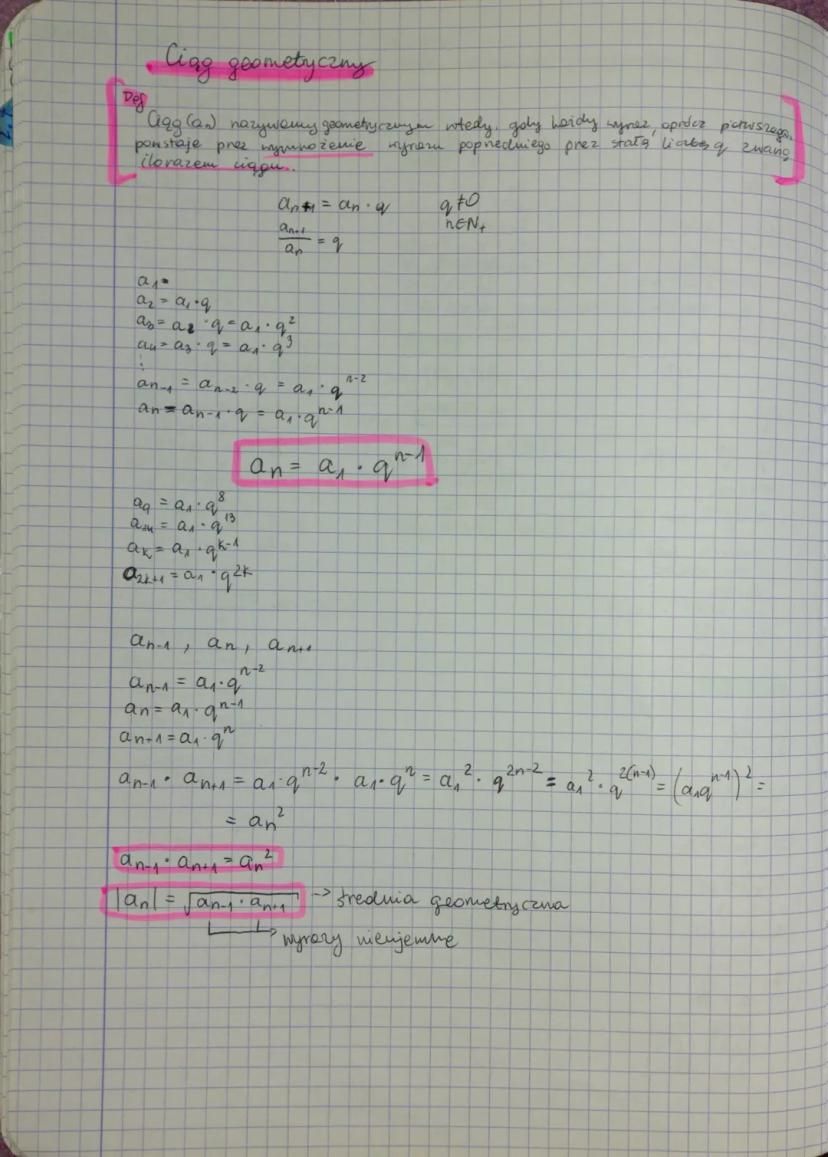 Ciąg geometryczny
Def
Ciąg (an) nazywamy geometrycznym wtedy, gdy każdy wyraz, oprócz pierwszego,
powstaje przez wymnożenie wyrazu poprzedniego przez stałą liczbę q zwaną
ilorazem ciągu.
aₙ₊₁ = aₙ · q q ≠ 0
aₙ₊₁/aₙ = q n∈N₊
a₁ =
a₂ = a₁ · q
a₃ = a₂ · q = a₁ · q²
a₄ = a₃ · q = a₁ · q³
⋮
aₙ₋₁ = aₙ₋₂ · q = a₁ · qⁿ⁻²
aₙ = aₙ₋₁ · q = a₁ · qⁿ⁻¹
aₙ = a₁ · qⁿ⁻¹
a₉ = a₁ · q⁸
a₁₄ = a₁ · q¹³
aₖ = a₁ · qᵏ⁻¹
a₂ₖ₊₁ = a₁ · q²ᵏ
aₙ₋₁ , aₙ , aₙ₊₁
aₙ₋₁ = a₁ · qⁿ⁻²
aₙ = a₁ · qⁿ⁻¹
aₙ₊₁ = a₁ · qⁿ
aₙ₋₁ · aₙ₊₁ = a₁ · qⁿ⁻² · a₁ · qⁿ = a₁² · q²ⁿ⁻² = a₁² · q²⁽ⁿ⁻¹⁾ = (a₁qⁿ⁻¹)² =
= aₙ²
aₙ₋₁ · aₙ₊₁ = aₙ²
|aₙ| = √(aₙ₋₁ · aₙ₊₁) -> średnia geometryczna
wyrazy nieujemne